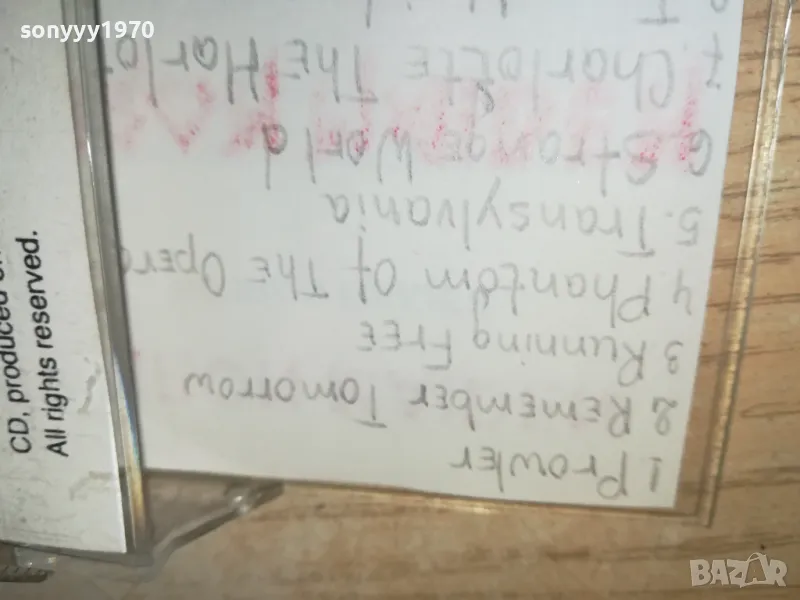 sonyyy1970
1 Prowler
2 Remember Tomorrow
3 Running Free
4 Phantom Of The Opera
5. Transylvania
6 Strange World
7. Charlotte The Harlot
CD, produced
All rights reserved.
BAZAR